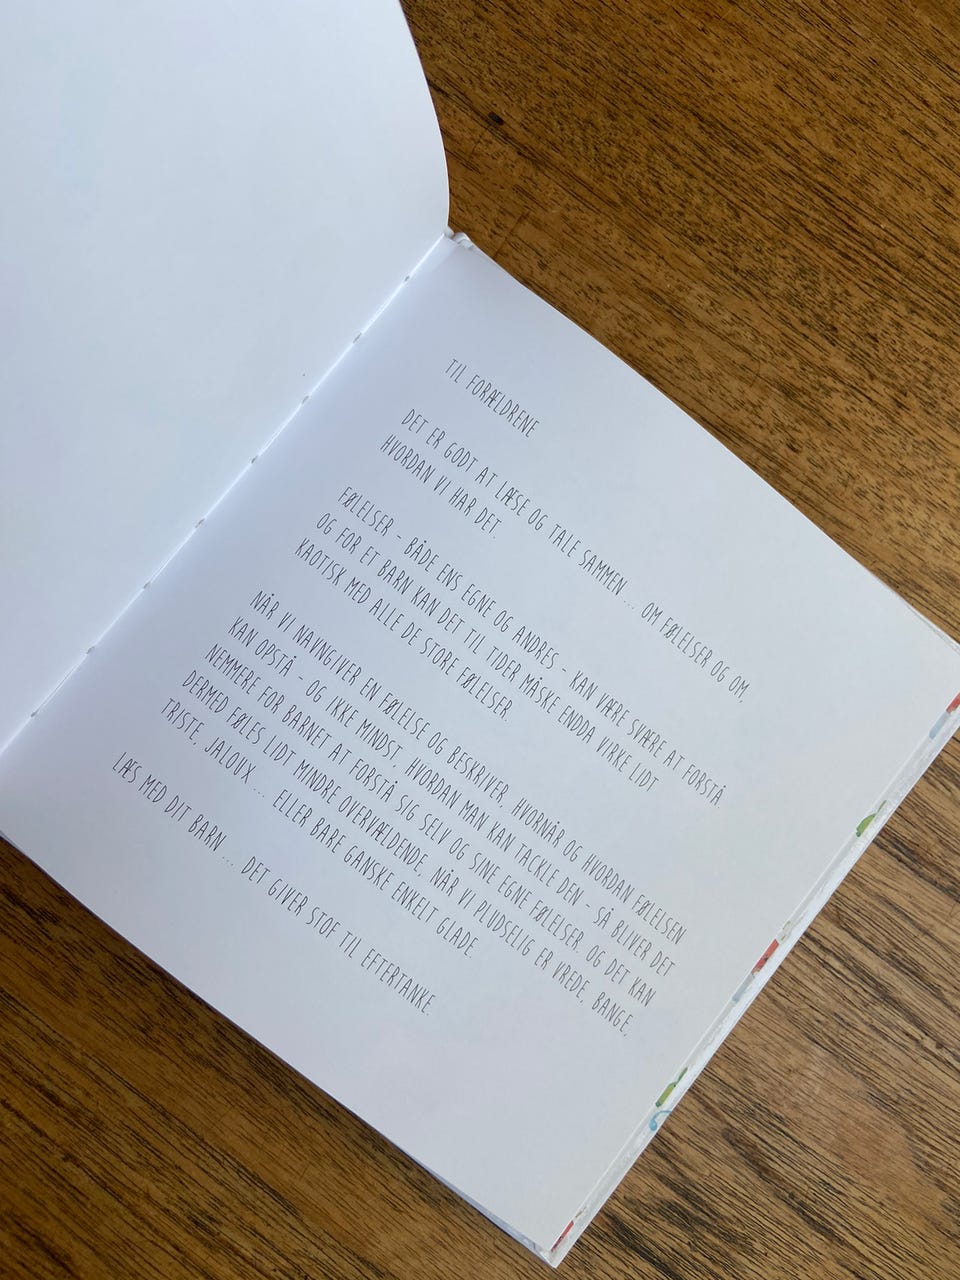 TIL FORÆLDRENE
DET ER GODT AT LÆSE OG TALE SAMMEN ... OM FØLELSER OG OM,
HVORDAN VI HAR DET.
FØLELSER - BÅDE ENS EGNE OG ANDRES - KAN VÆRE SVÆRE AT FORSTÅ
OG FOR ET BARN KAN DET TIL TIDER MÅSKE ENDDA VIRKE LIDT
KAOTISK MED ALLE DE STORE FØLELSER.
NÅR VI NAVNGIVER EN FØLELSE OG BESKRIVER, HVORNÅR OG HVORDAN FØLELSEN
KAN OPSTÅ - OG IKKE MINDST, HVORDAN MAN KAN TACKLE DEN - SÅ BLIVER DET
NEMMERE FOR BARNET AT FORSTÅ SIG SELV OG SINE EGNE FØLELSER. OG DET KAN
DERMED FØLES LIDT MINDRE OVERVÆLDENDE, NÅR VI PLUDSELIG ER VREDE, BANGE,
TRISTE, JALOUX ... ELLER BARE GANSKE ENKELT GLADE.
LÆS MED DIT BARN ... DET GIVER STOF TIL EFTERTANKE.